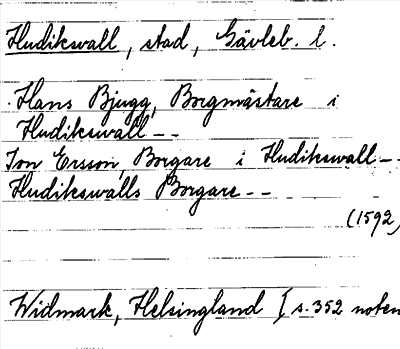 Hudikswall, stad, Gävleb. l.
Hans Bjugg, Borgmästare i
Hudikswall --
Jon Ersson, Borgare i Hudikswall --
Hudikswalls Borgare --
(1592)
Widmark, Helsingland I s. 352 noten